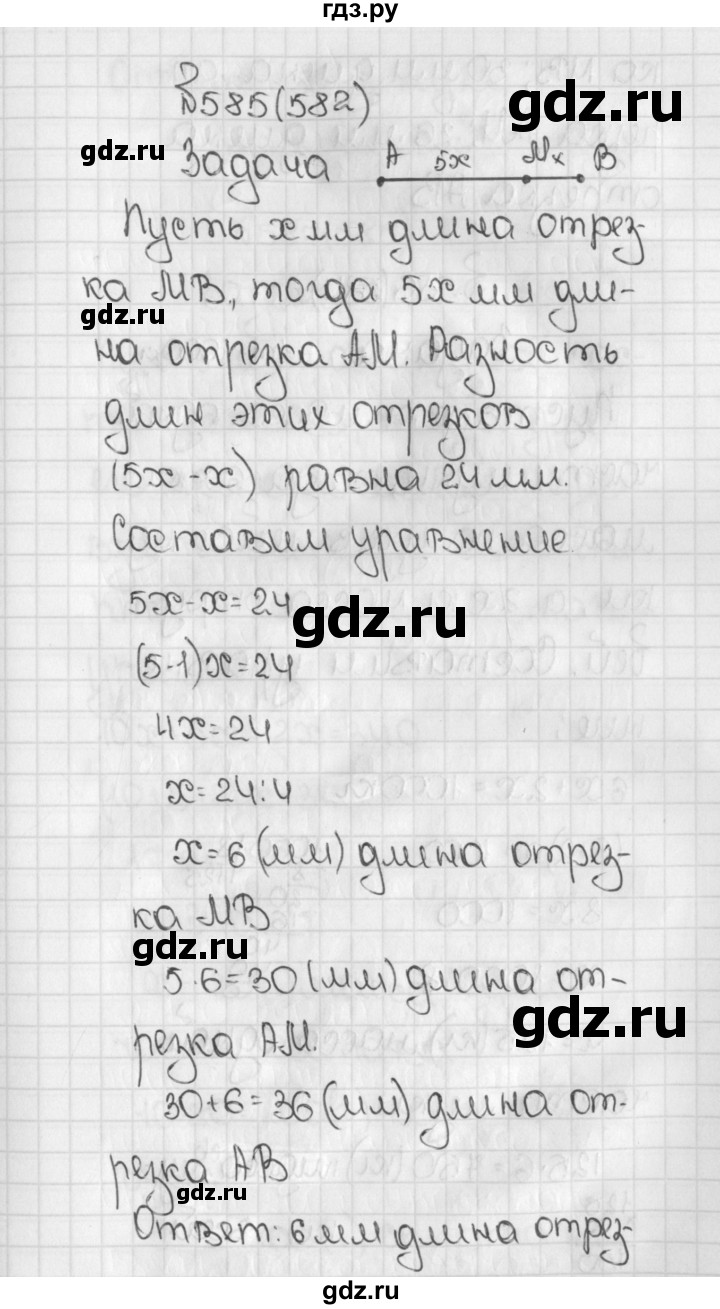 гдз.ру
№585(582)
gdz.ru
gdz.ru
Задача
A 5x M x B
Пусть x мм длина отрез-
ка МВ, тогда 5x мм дли-
gdz.ru
на отрезка АМ. Разность
длин этих отрезков
(5x-x) равна 24 мм.
Составим уравнение.
5x-x=24
gdz.ru
(5-1)x=24
4x=24
x=24:4
x=6 (мм) длина отрез-
ка МВ
gdz.ru
5·6=30 (мм) длина от-
gdz.ru
резка АМ.
30+6=36 (мм) длина от-
резка АВ
gdz.ru
Ответ: 6 мм длина отрез-
gdz.ru